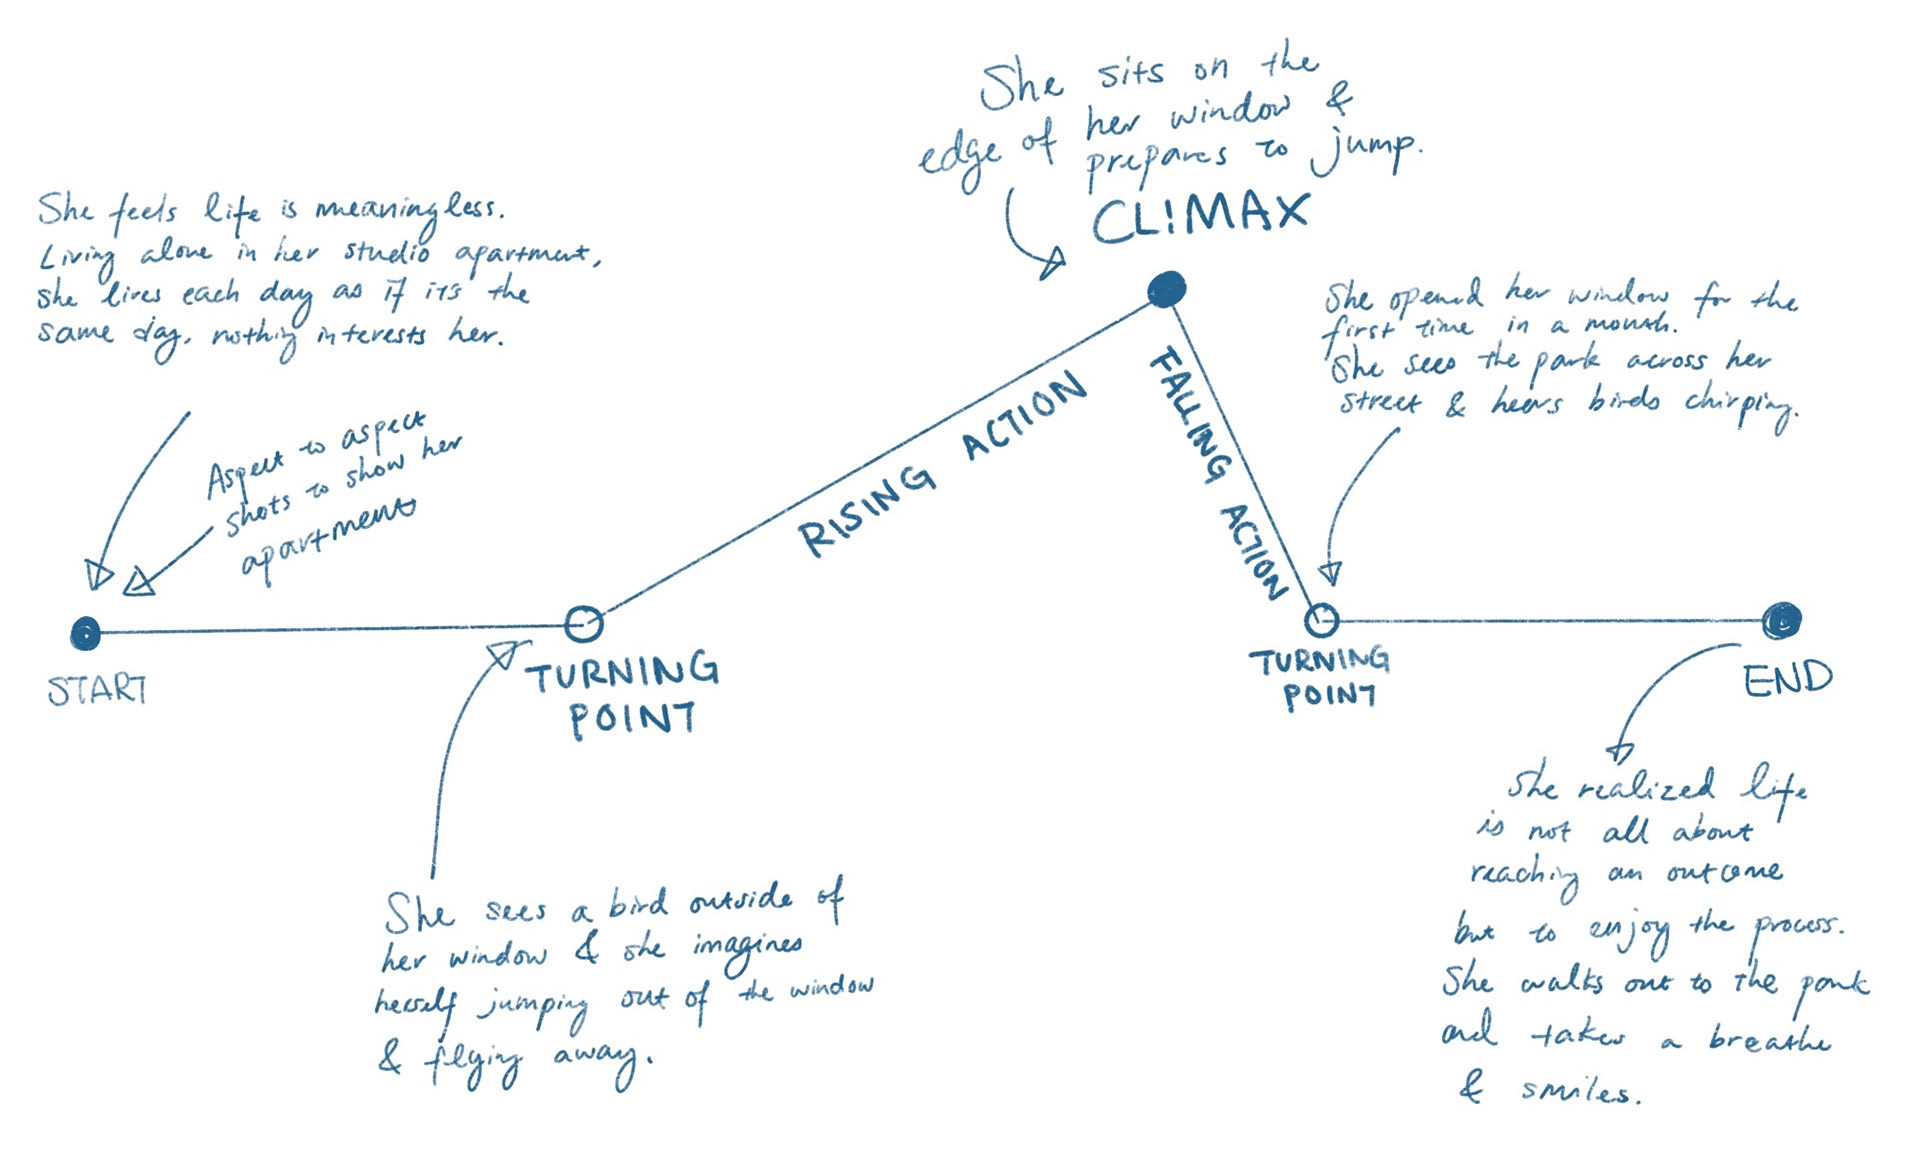 She sits on the
edge of her window &
prepares to jump.
CLIMAX
She feels life is meaningless.
Living alone in her studio apartment,
she lives each day as if it's the
same day, nothing interests her.
Aspect to aspect
shots to show her
apartment
START
TURNING
POINT
She sees a bird outside of
her window & she imagines
herself jumping out of the window
& flying away.
RISING ACTION
FALLING ACTION
She opened her window for the
first time in a month.
She sees the park across her
street & hears birds chirping.
TURNING
POINT
END
She realized life
is not all about
reaching an outcome
but to enjoy the process.
She walks out to the park
and takes a breathe
& smiles.